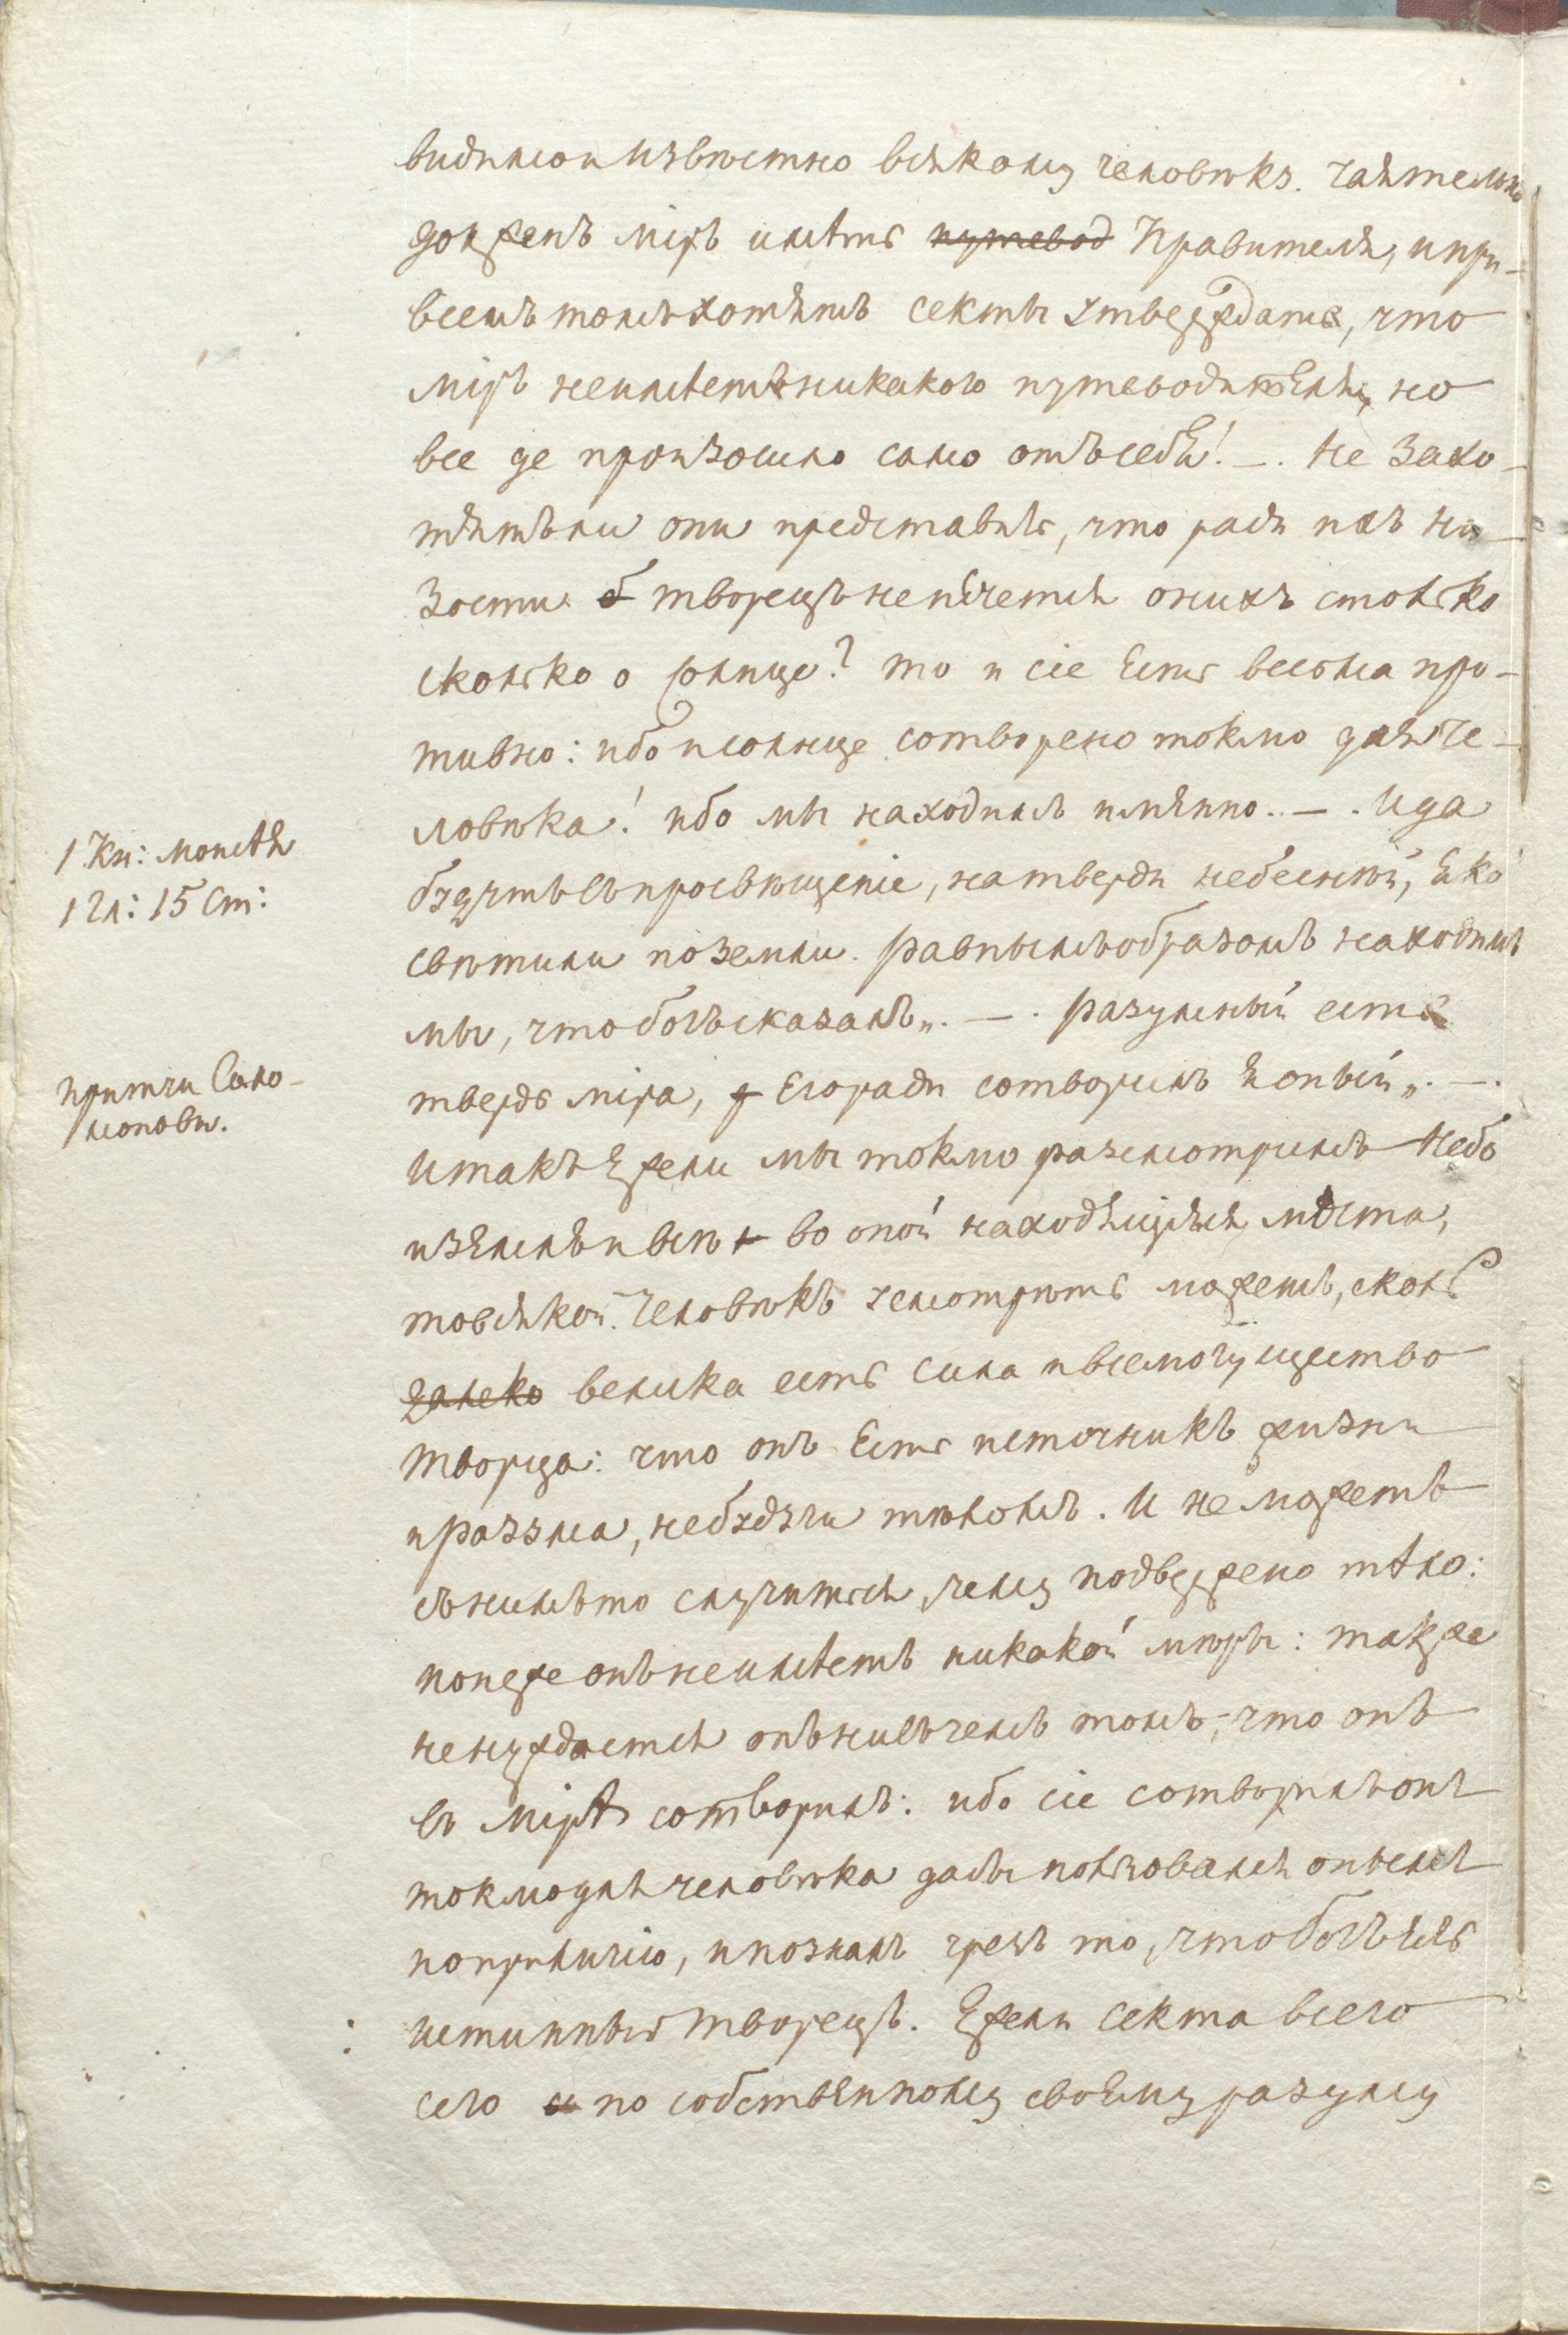 видимо и извѣстно всякому человѣку. чаятельно
долженъ міръ имѣть путевод Правителя, и при-
всемъ томъ хотятъ секты утверждать, что
міръ неимѣетъ никакого путеводителя, но
все де произошло само отъ себя! —. Не захо-
тятъ ли они представить, что ради ихъ ни-
зости творецъ непечется онихъ столько
сколько о солнце? то и сіе Есть весьма про-
тивно: ибо и солнце сотворено токмо для че-
ловѣка! ибо мы находимъ имянно.. — . И да
1 Кн: Моисѣя
1 Гл: 15 Ст:
будутъ въ просвѣщеніе, на тверди небесной, яко
свѣтили по земли. равнымъ образомъ находимъ
мы, что богъ сказалъ„. — . разумный есть
Притчи Соло-
моновы.
твердь міра, Его ради сотворилъ я оный„. — .
И такъ Ежели мы токмо разсмотримъ Небо
и землю и всѣ во оной находящіяся мѣста,
то всякой человѣкъ усмотрѣть можетъ, сколь
далеко велика есть сила и всемогущество
Творца: что онъ Есть источникъ жизни
и разума, небудучи тѣломъ. И не можетъ
съ нимъ то случиться, чему подвержено тѣло:
понеже онъ неимѣетъ никакой мѣры: такъже
ненуждается онъ ни въ чемъ томъ, что онъ
въ мірѣ сотворилъ: ибо сіе сотворилъ онъ
токмо для человѣка дабы пользовался онымъ
по приличію, и позналъ чрезъ то, что богъ есть
истинный Творецъ. Ежели секта всего
сего по собственному своему разуму